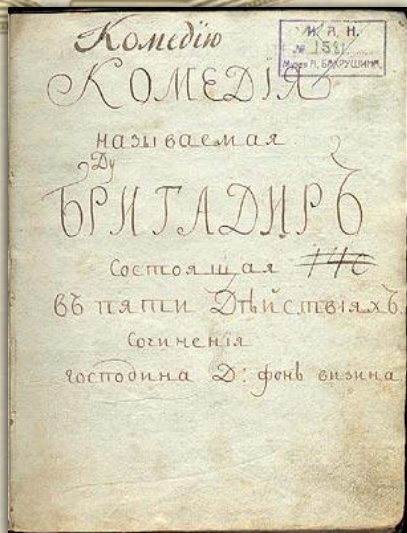 Комедїю
И. А. Н.
№ 1581
Музея А. БАХРУШИНА
КОМЕДІЯ
называемая
БРИГАДИРЪ
Состоящая
въ пяти Дѣйствіяхъ
Сочиненія
господина Д: фонъ визина